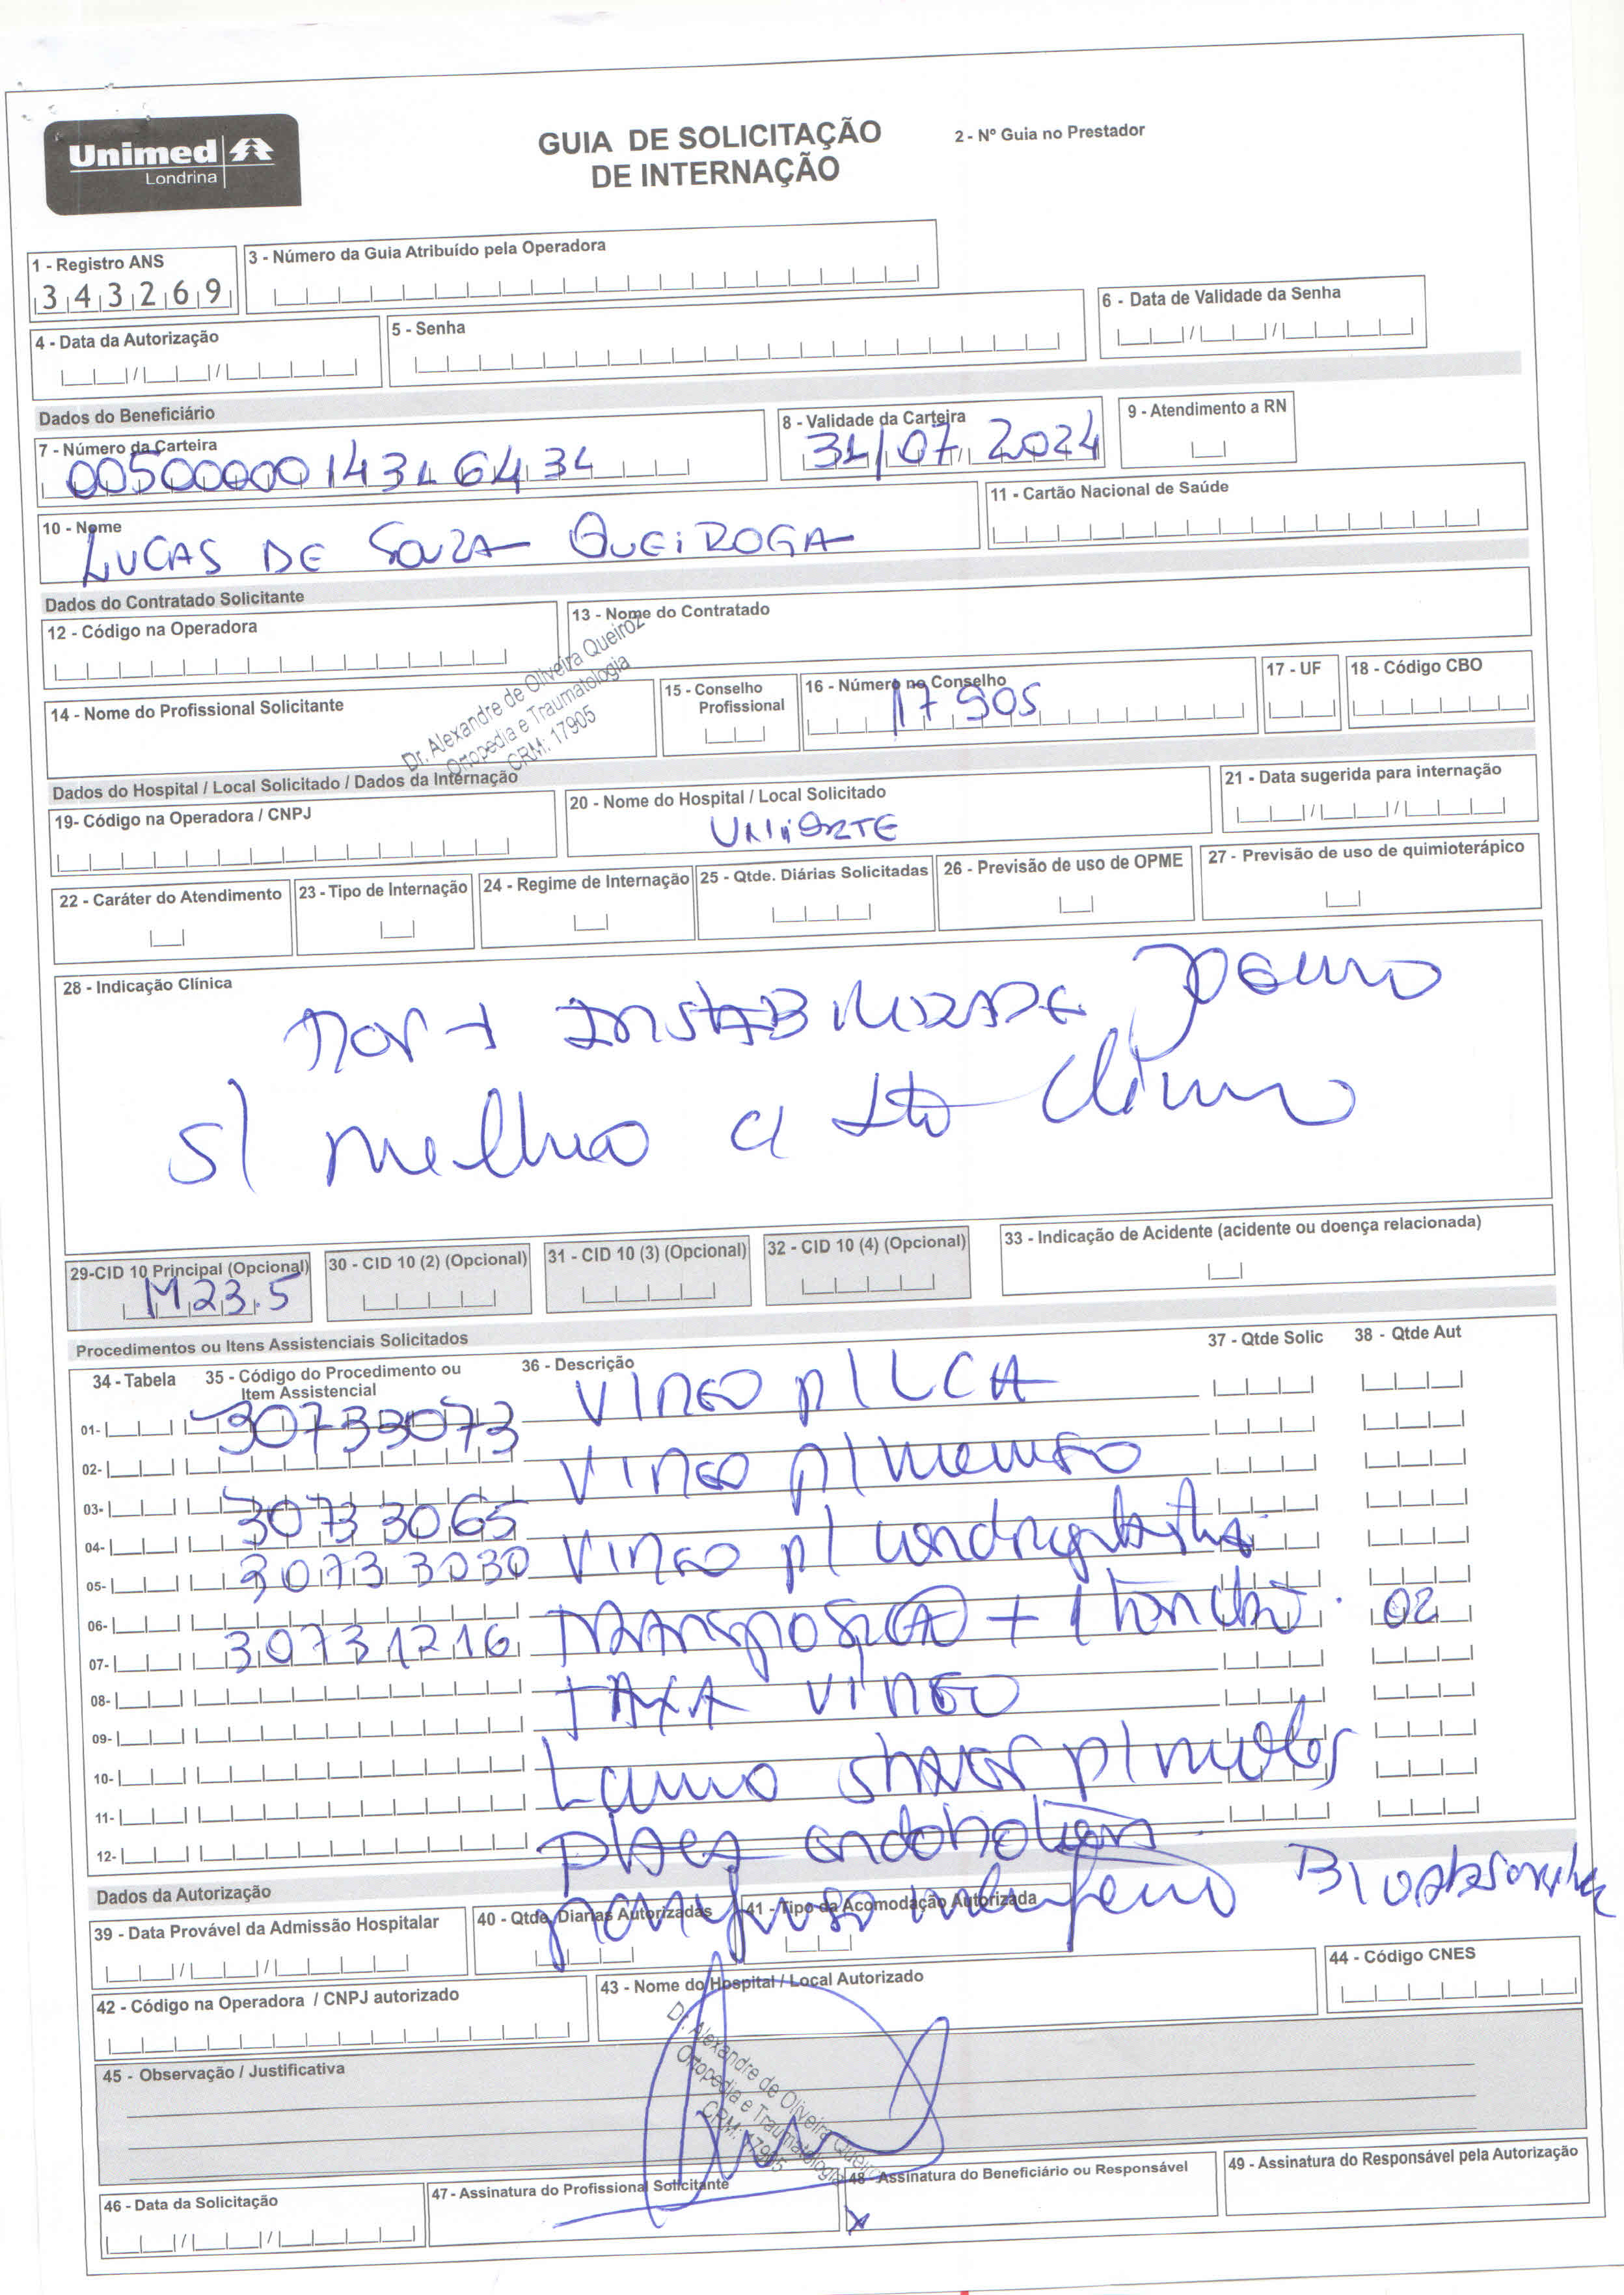 Unimed
Londrina
GUIA DE SOLICITAÇÃO
DE INTERNAÇÃO
2 - Nº Guia no Prestador
1 - Registro ANS
343269
3 - Número da Guia Atribuído pela Operadora
4 - Data da Autorização
5 - Senha
6 - Data de Validade da Senha
Dados do Beneficiário
7 - Número da Carteira
8 - Validade da Carteira
31/07/2024
9 - Atendimento a RN
10 - Nome
LUCAS DE SOUZA QUEIROGA
11 - Cartão Nacional de Saúde
Dados do Contratado Solicitante
12 - Código na Operadora
13 - Nome do Contratado
14 - Nome do Profissional Solicitante
Dr. Alexandre de Oliveira Queiroz
Ortopedia e Traumatologia
CRM: 17905
15 - Conselho Profissional
16 - Número no Conselho
17905
17 - UF
18 - Código CBO
Dados do Hospital / Local Solicitado / Dados da Internação
19- Código na Operadora / CNPJ
20 - Nome do Hospital / Local Solicitado
21 - Data sugerida para internação
22 - Caráter do Atendimento
23 - Tipo de Internação
24 - Regime de Internação
25 - Qtde. Diárias Solicitadas
26 - Previsão de uso de OPME
27 - Previsão de uso de quimioterápico
28 - Indicação Clínica
+ INSTABILIDADE
s/ c/ tto
29-CID 10 Principal (Opcional)
M23.5
30 - CID 10 (2) (Opcional)
31 - CID 10 (3) (Opcional)
32 - CID 10 (4) (Opcional)
33 - Indicação de Acidente (acidente ou doença relacionada)
Procedimentos ou Itens Assistenciais Solicitados
34 - Tabela
35 - Código do Procedimento ou Item Assistencial
36 - Descrição
37 - Qtde Solic
38 - Qtde Aut
01-
30733073
VIDEO p/ LCA
02-
VIDEO p/
03-
30733065
04-
05-
30733030
VIDEO p/
06-
07-
30731216
02
08-
TAXA VIDEO
09-
10-
p/
11-
12-
Dados da Autorização
39 - Data Provável da Admissão Hospitalar
40 - Qtde. Diarias Autorizadas
41 - Tipo da Acomodação Autorizada
42 - Código na Operadora / CNPJ autorizado
43 - Nome do Hospital / Local Autorizado
44 - Código CNES
Dr. Alexandre de Oliveira Queiroz
Ortopedia e Traumatologia
CRM: 17905
45 - Observação / Justificativa
46 - Data da Solicitação
47 - Assinatura do Profissional Solicitante
48 - Assinatura do Beneficiário ou Responsável
x
49 - Assinatura do Responsável pela Autorização